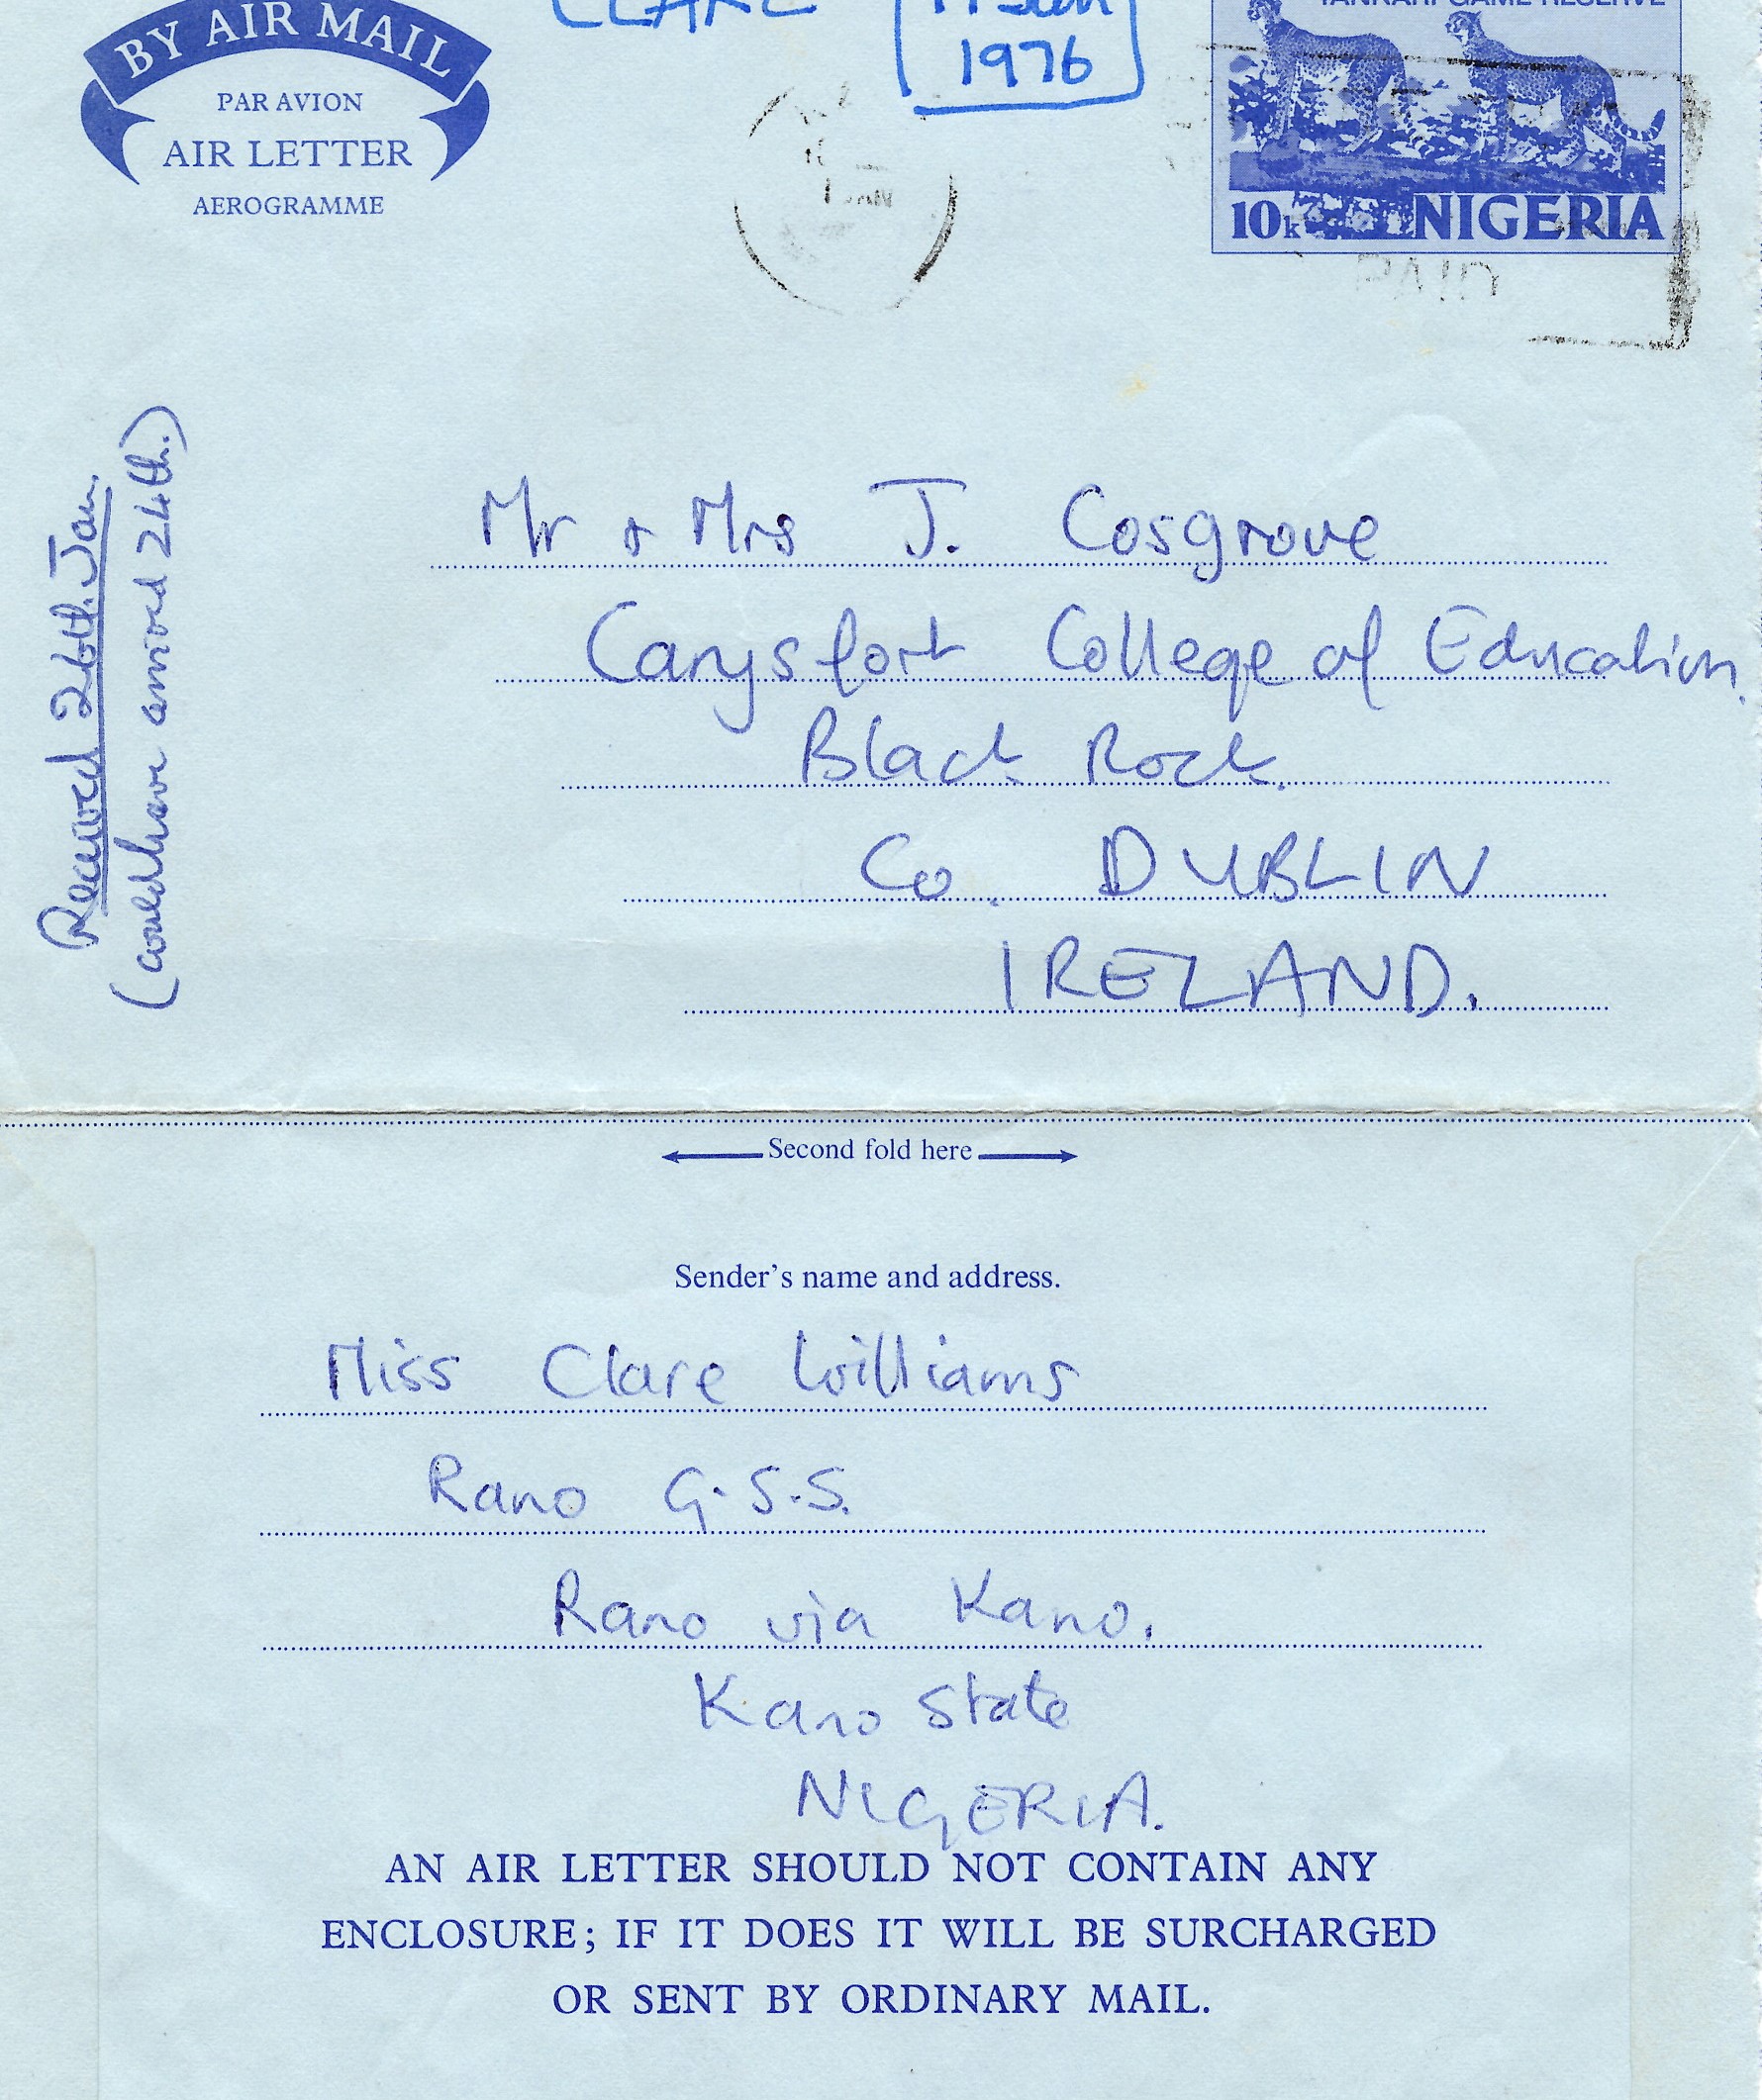 CLARE
1976
BY AIR MAIL
PAR AVION
AIR LETTER
AEROGRAMME
YANKARI GAME RESERVE
10k NIGERIA
PAID
Received 26th. Jan.
(could have arrived 24th.)
Mr & Mrs J. Cosgrove
Carysfort College of Education.
Black Rock.
Co. DUBLIN
IRELAND.
Second fold here
Sender's name and address.
Miss Clare Williams
Rano G.S.S.
Rano via Kano.
Kano State
NIGERIA.
AN AIR LETTER SHOULD NOT CONTAIN ANY
ENCLOSURE; IF IT DOES IT WILL BE SURCHARGED
OR SENT BY ORDINARY MAIL.